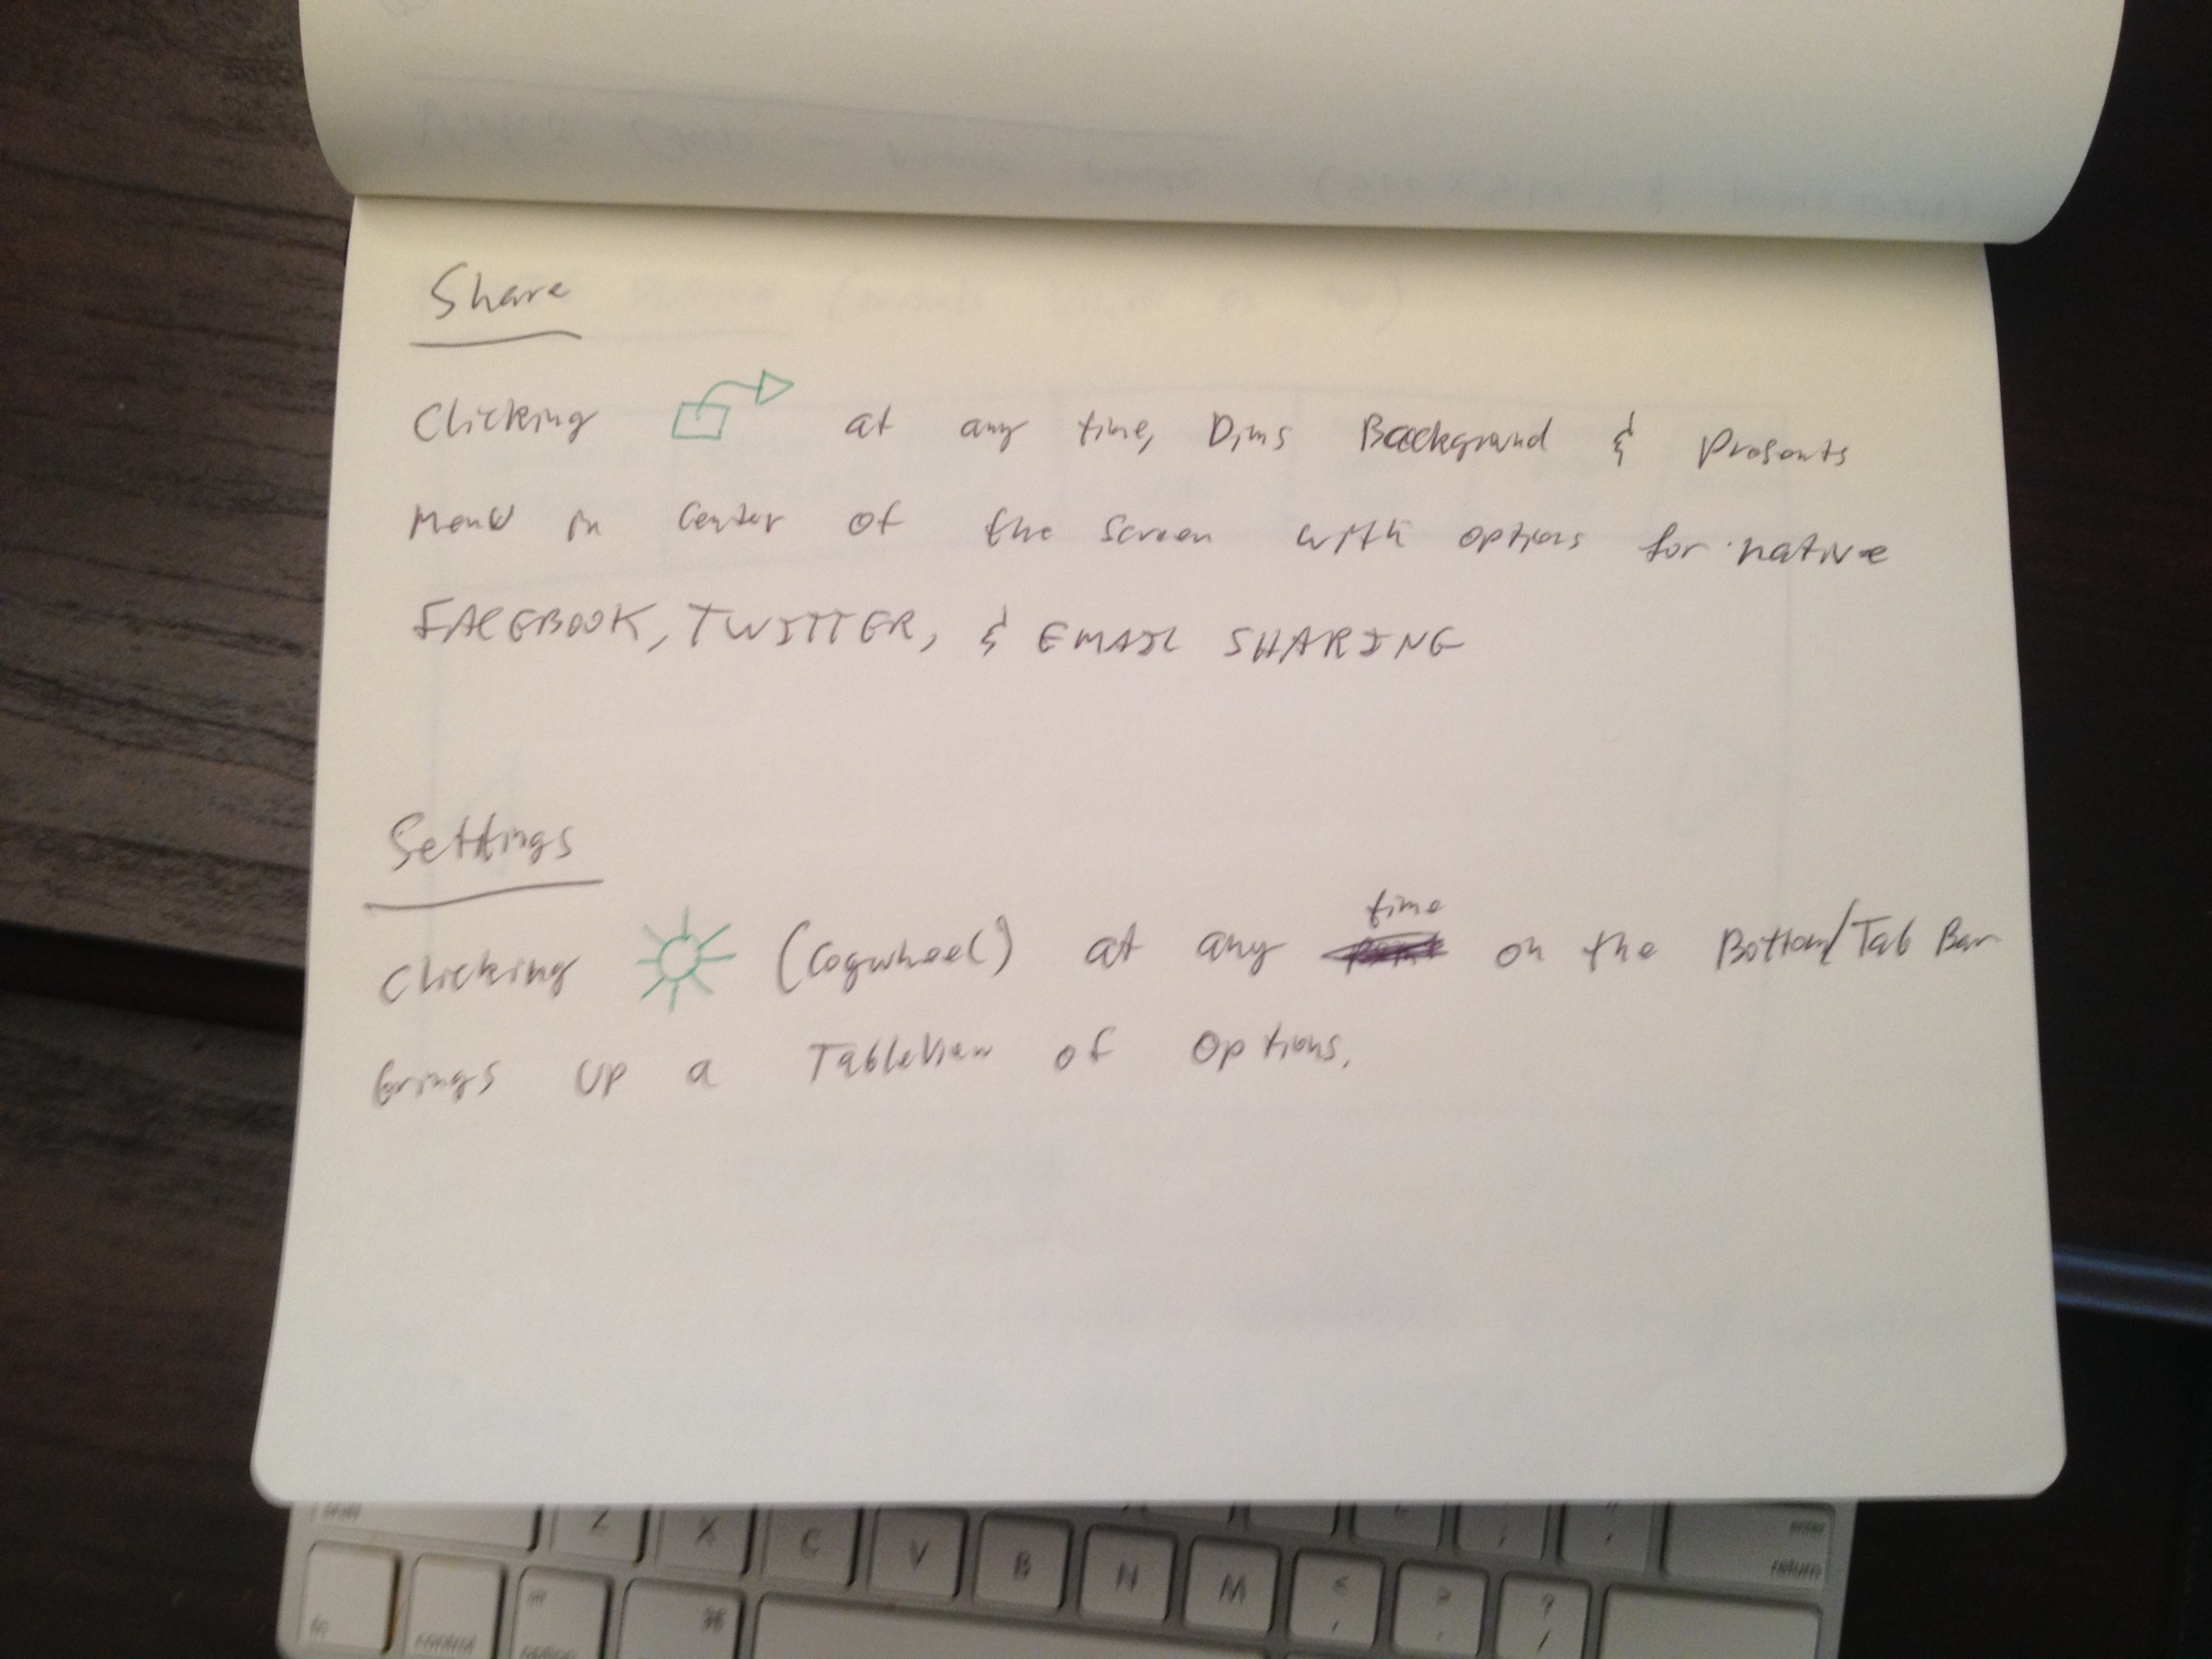 Share
Clicking at any time, Dims Background & Presents
Menu in Center of the Screen with options for native
FACEBOOK, TWITTER, & EMAIL SHARING
Settings
time
Clicking (Cogwheel) at any on the Bottom/Tab Bar
brings up a TableView of Options.
Z X C V B N M < , > . ? / enter return
fn control alt option ⌘